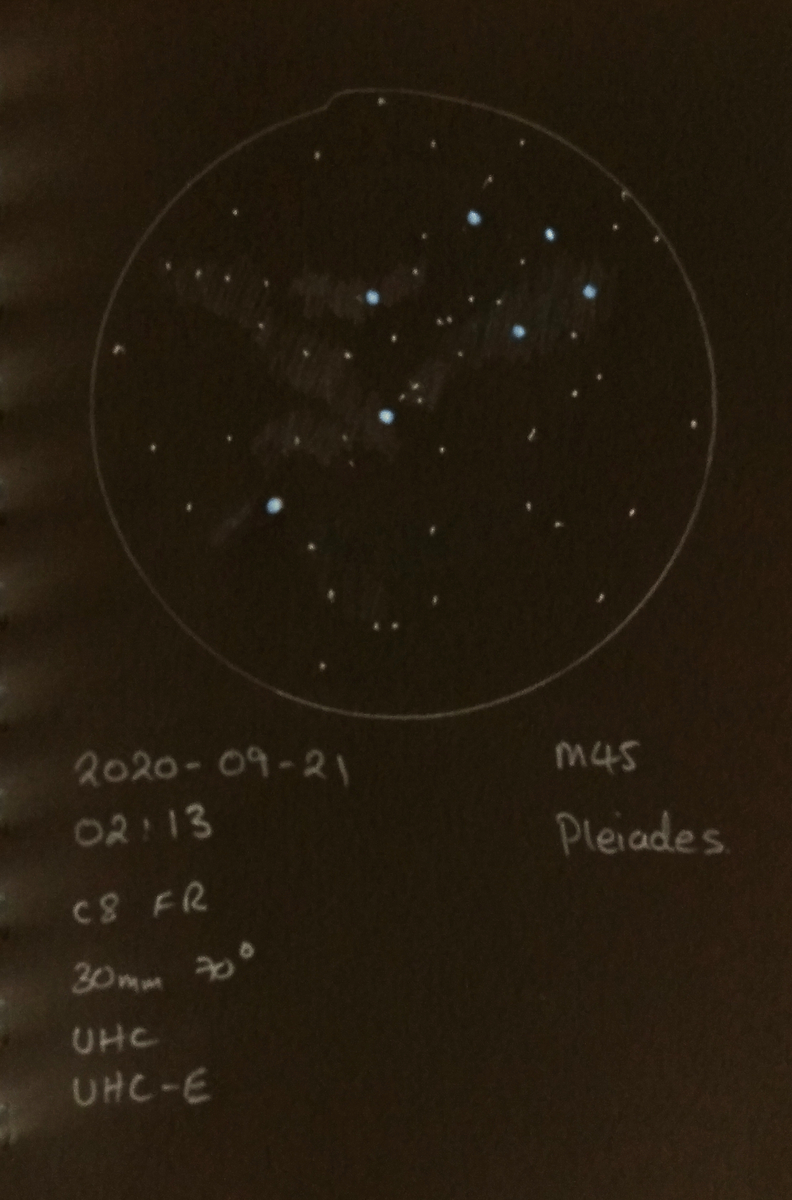 2020-09-21
02:13
C8 FR
30mm 70°
UHC
UHC-E
M45
Pleiades